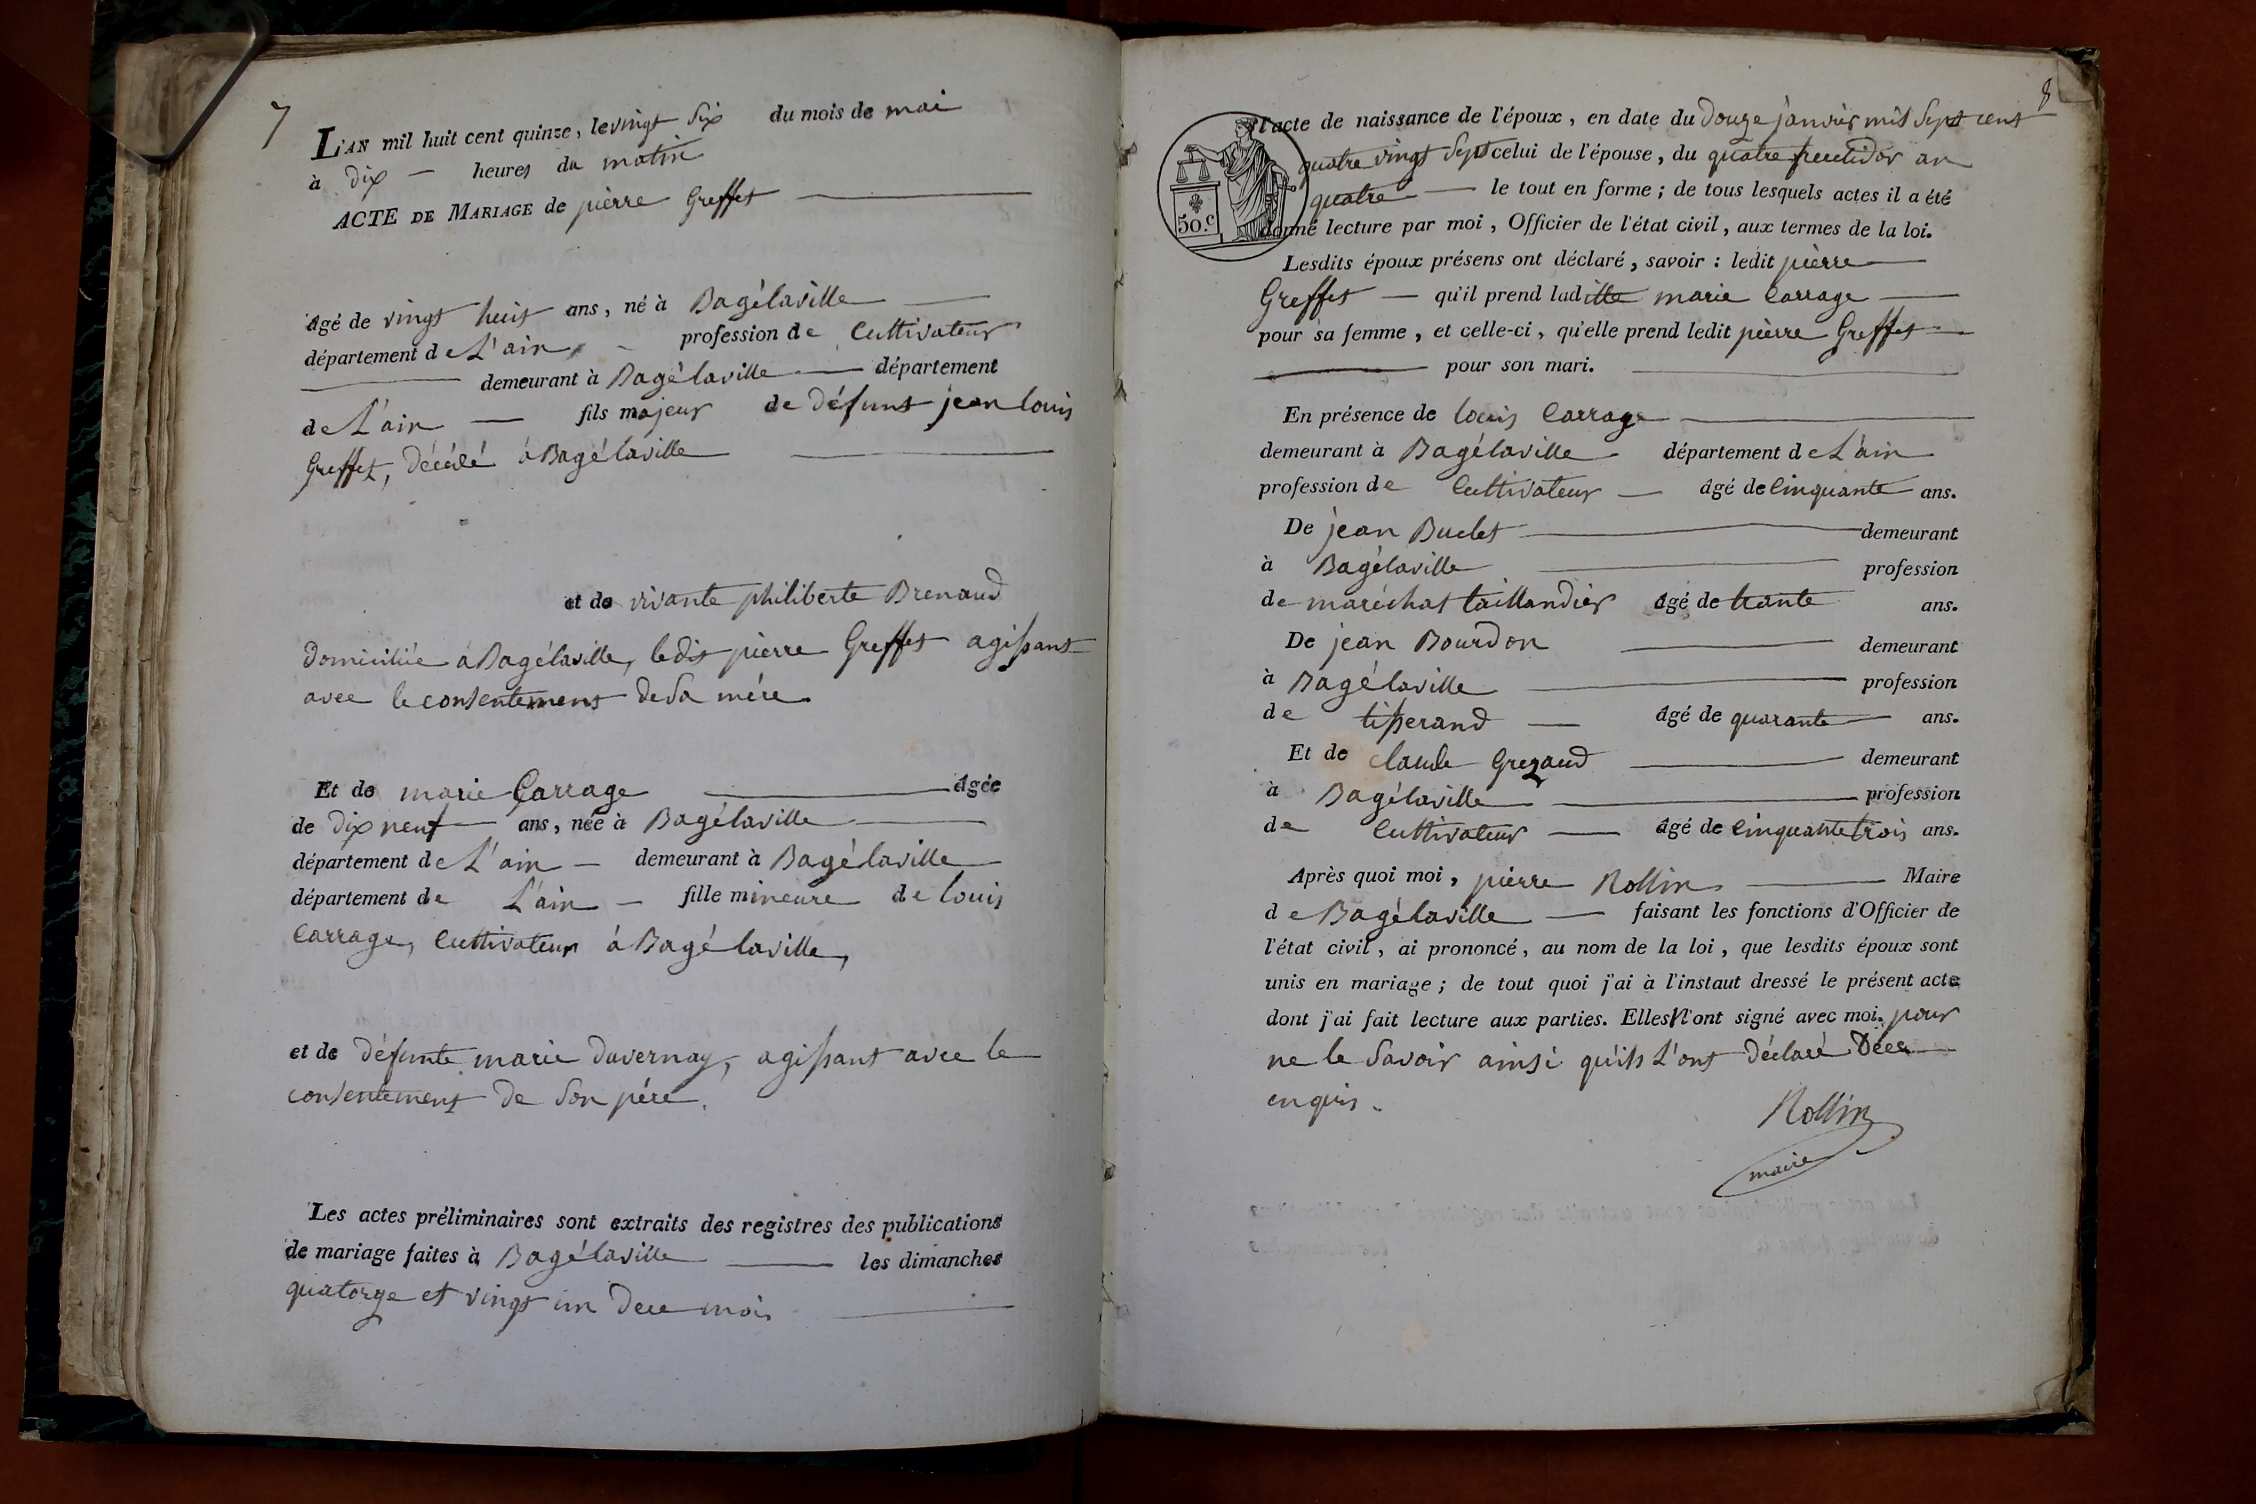 7
L'AN mil huit cent quinze, le vingt six du mois de mai
à dix heures du matin
ACTE DE MARIAGE de pierre Greffet
âgé de vingt huit ans, né à Bagélaville
département de L'ain profession de Cultivateur
demeurant à Bagélaville département
de L'ain fils majeur de défunt jean louis
Greffet, décédé à Bagélaville
et de vivante philiberte Brenaud
domiciliée à Bagélaville, ledit pierre Greffet agissant
avec le consentement de sa mére
Et de marie Carrage âgée
de dix neuf ans, née à Bagélaville
département de L'ain demeurant à Bagélaville
département de L'ain fille mineure de louis
Carrage, Cultivateur à Bagélaville,
et de défunte marie duvernay, agissant avec le
consentement de son pére.
Les actes préliminaires sont extraits des registres des publications
de mariage faites à Bagélaville les dimanches
quatorze et vingt un de ce mois
8
l'acte de naissance de l'époux, en date du douze janvier mil sept cent
quatre vingt sept celui de l'épouse, du quatre fructidor an
quatre le tout en forme; de tous lesquels actes il a été
donné lecture par moi, Officier de l'état civil, aux termes de la loi.
50.c
Lesdits époux présens ont déclaré, savoir : ledit pierre
Greffet qu'il prend ladite marie Carrage
pour sa femme, et celle-ci, qu'elle prend ledit pierre Greffet
pour son mari.
En présence de louis Carrage
demeurant à Bagélaville département de L'ain
profession de Cultivateur âgé de Cinquante ans.
De jean Buclet demeurant
à Bagélaville profession
de maréchal taillandier âgé de trante ans.
De jean Bourdon demeurant
à Bagélaville profession
de tisserand âgé de quarante ans.
Et de claude Grezaud demeurant
à Bagélaville profession
de Cultivateur âgé de Cinquante trois ans.
Après quoi moi, pierre Rollin Maire
de Bagélaville faisant les fonctions d'Officier de
l'état civil, ai prononcé, au nom de la loi, que lesdits époux sont
unis en mariage; de tout quoi j'ai à l'instaut dressé le présent acte
dont j'ai fait lecture aux parties. Elles n'ont signé avec moi. pour
ne le savoir ainsi qu'ils L'ont déclaré de ce
enquis.
Rollin
maire